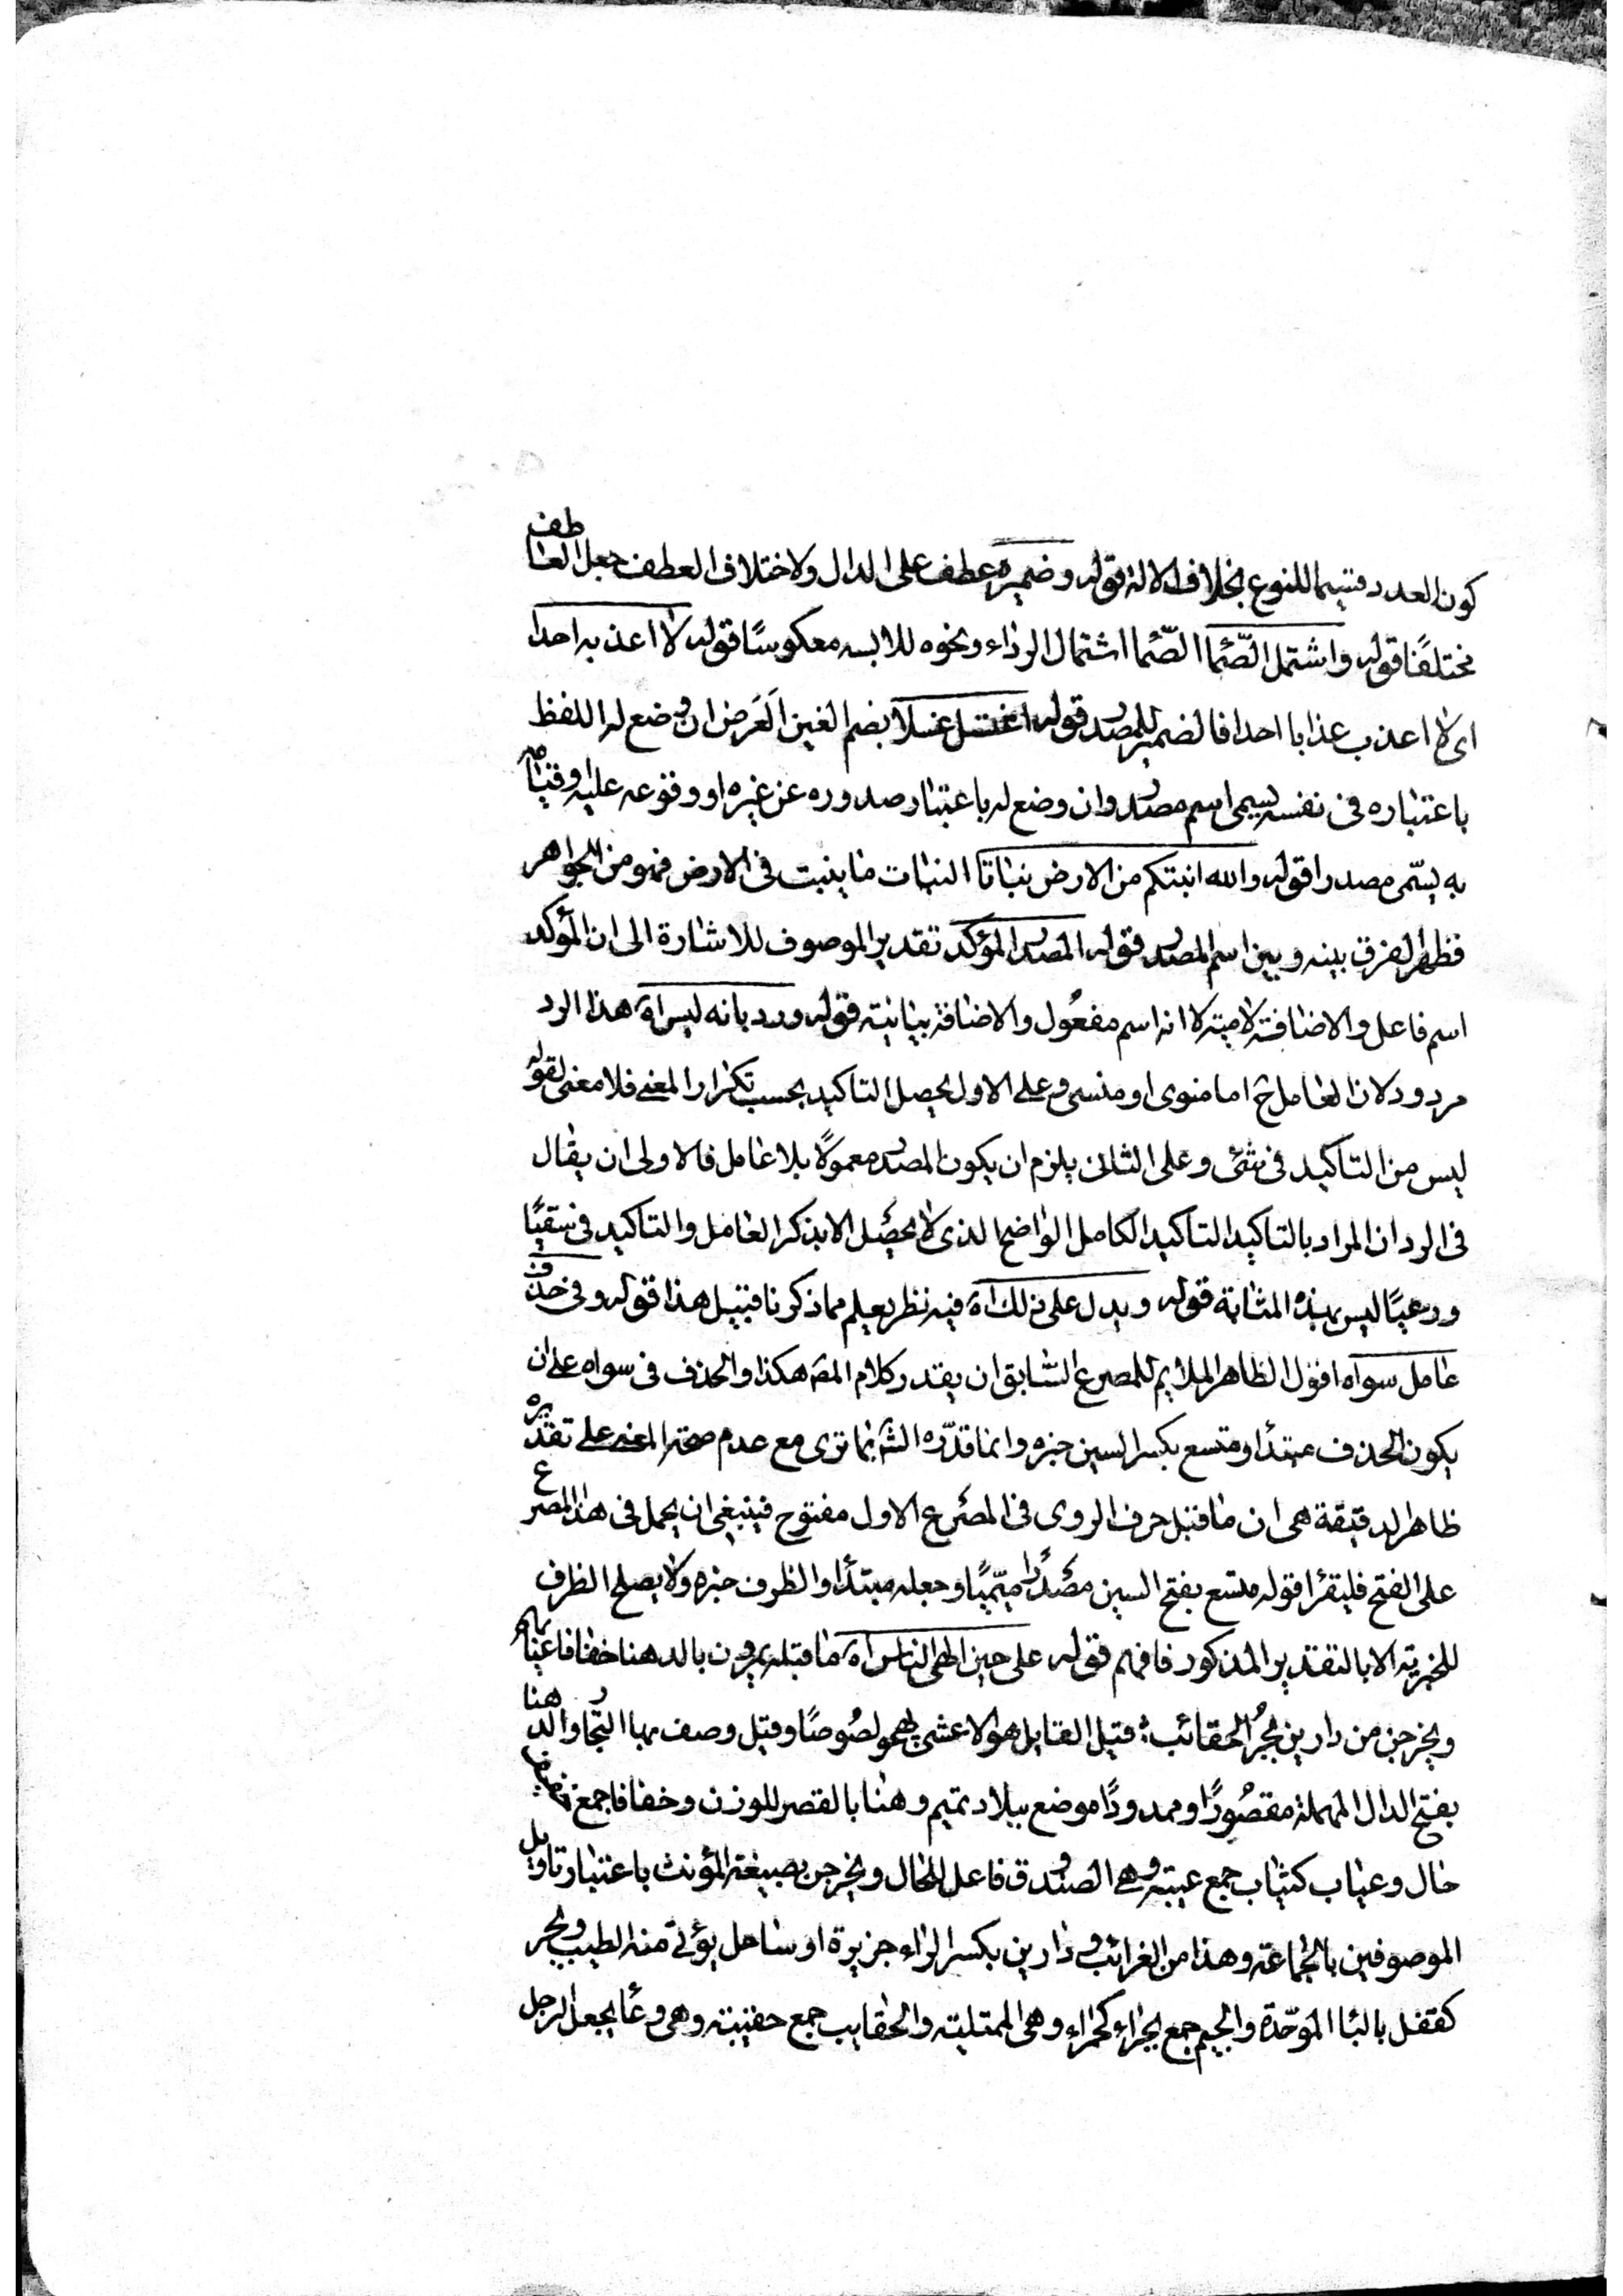 كون العدد قسيما للنوع بخلاف الالة قوله وضميره عطف على الدال ولاختلاف العطف جعل العاطف
مختلفًا قوله واشتمل الصّمّا الصّمّا اشتمال الرداء ونحوه للابسه معكوسًا قوله لا اعذبه احدا
اى لا اعذب عذابا احدا فالضمير للمصدر قوله اغتسل غسلا بضم الغين الَعَرَض ان وضع له اللفظ
باعتباره فى نفسه يسمى اسم مصدر وان وضع له باعتبار صدوره عن غيره او وقوعه عليه وقيامه
به يسّمى مصدرا قوله والله انبتكم من الارض نباتا النبات ما ينبت فى الارض فهو من الجواهر
فظهر الفرق بينه وبين اسم المصدر قوله المصدر المؤكد تقدير الموصوف للاشارة الى ان المؤكد
اسم فاعل والاضافة لامية لا انه اسم مفعُول والاضافة بيانية قوله ورد بانه ليس اه هذا الرد
مردود لان العامل ح اما منوى او منسى وعلى الاول يحصل التاكيد بحسب تكرار المعنى فلا معنى لقوله
ليس من التاكيد فى شئ وعلى الثانى يلزم ان يكون المصدر معمولًا بلا عامل فالاولى ان يقال
فى الرد ان المراد بالتاكيد التاكيد الكامل الواضح الذى لا يحصل الا بذكر العامل والتاكيد فى سقيًا
ورعيًا ليس بهذه المثابة قوله ويدل على ذلك اه فيه نظر يعلم مما ذكرنا قبيل هذا قوله وفى حذف
عامل سواه اقول الظاهر الملايم للمصرع السابق ان يقدر كلام المصه هكذا والحذف فى سواه على ان
يكون الحذف مبتدأ ومتسع بكسر السين خبره وانما قدّره الش بما ترى مع عدم صحة المعنى على تقديره
ظاهر الدقيقة هى ان ما قبل حرف الروى فى المصرع الاول مفتوح فينبغى ان يحمل فى هذا المصرع
على الفتح فليقرأ قوله متسع بفتح السين مصدرًا ميّميًا وجعله مبتدأ والظرف خبره ولا يصلح الظرف
للخبرية الا بالتقدير المذكور فافهم قوله على حين الهى الناس اه ما قبله يمرون بالدهنا خفافا عيابهم
ويخرجن من دارين بُجرُ الحقائب: قيل القايل هو الاعشى يهجو لصُوصًا وقيل وصف بها التجار والدهنا
بفتح الدال المهملة مقصُورًا وممدودًا موضع ببلاد تميم وهنا بالقصر للوزن وخفافا جمع خفيف
حال وعياب كثياب جمع عيبة وهى الصندوق فاعل للحال ويخرجن بصيغة المؤنث باعتبار تاويل
الموصوفين بالجماعة وهذا من الغرائب ودارين بكسر الراء جزيرة او ساحل يؤتى منه الطيب وبجر
كقفل بالبا الموحّدة والجيم جمع بجراء كحمراء وهى الممتلية والحقايب جمع حقيبة وهى وعا يجعل الرجل